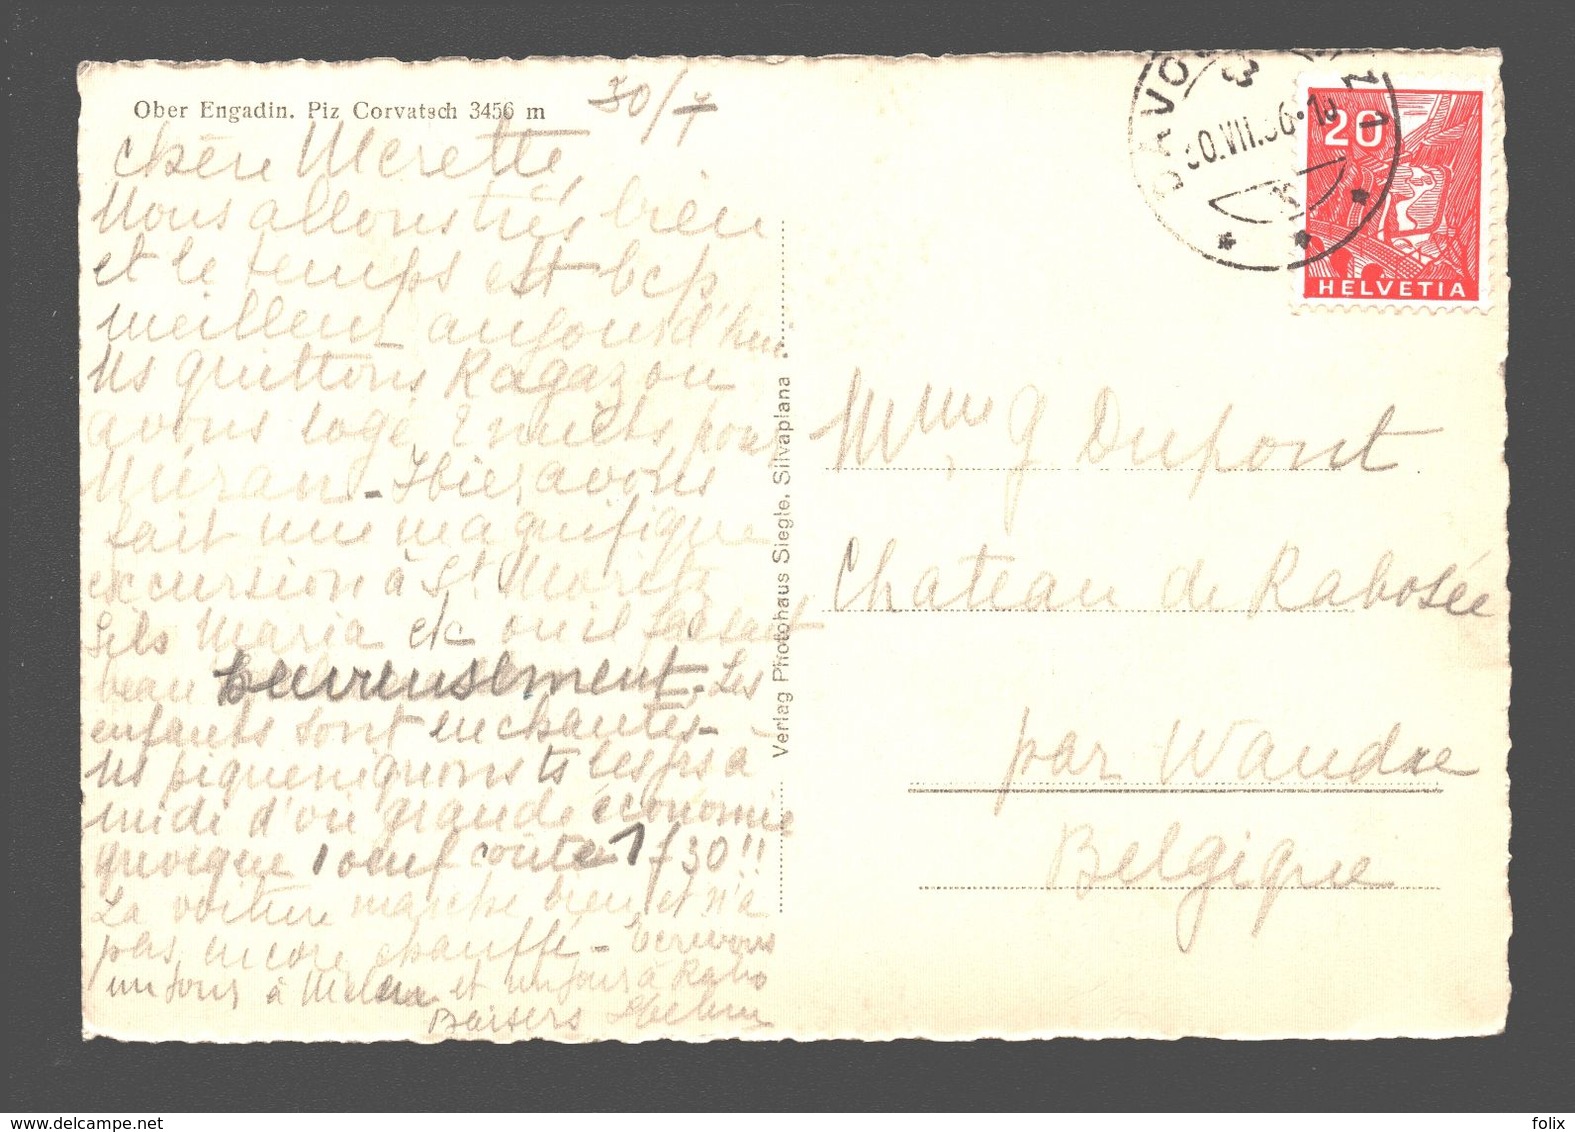 Ober Engadin. Piz Corvatsch 3456 m
30/7
Chère Merette
Nous allons très bien
et le temps est bcp
meilleur aujourd'hui
Ns quittons Ragaz ou
avons logé 2 nuits pour
Méran - Hier, avons
fait une magnifique
excursion à St Moritz
Sils Maria etc ou il faisait
beau heureusement. Les
enfants sont enchantés -
Ns piqueniquons ts les jrs à
midi d'où grande économie
quoique 1 oeuf coûte 1 f 30!!
La voiture marche bien et n'a
pas encore chauffé - Ecrivons
un jour à et un jour à Rabo
Baisers
Verlag Photohaus Siegle, Silvaplana
DAVOS
30.VII.36
20
HELVETIA
Mme G Dupont
Chateau de Rabosée
par Wandre
Belgique
folix